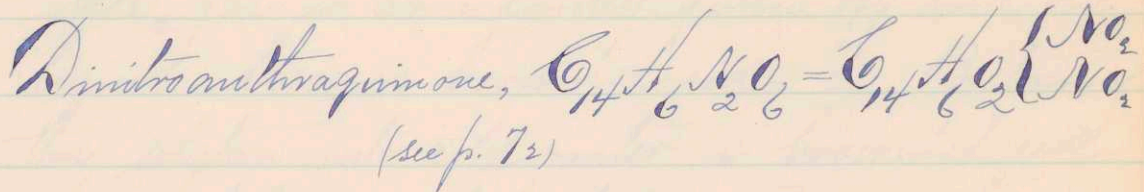 Dinitroanthraquinone, C₁₄H₆N₂O₆ = C₁₄H₆O₂{NO₂ NO₂
(see p. 72)